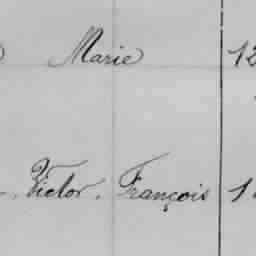 Marie 12
Victor, François 1